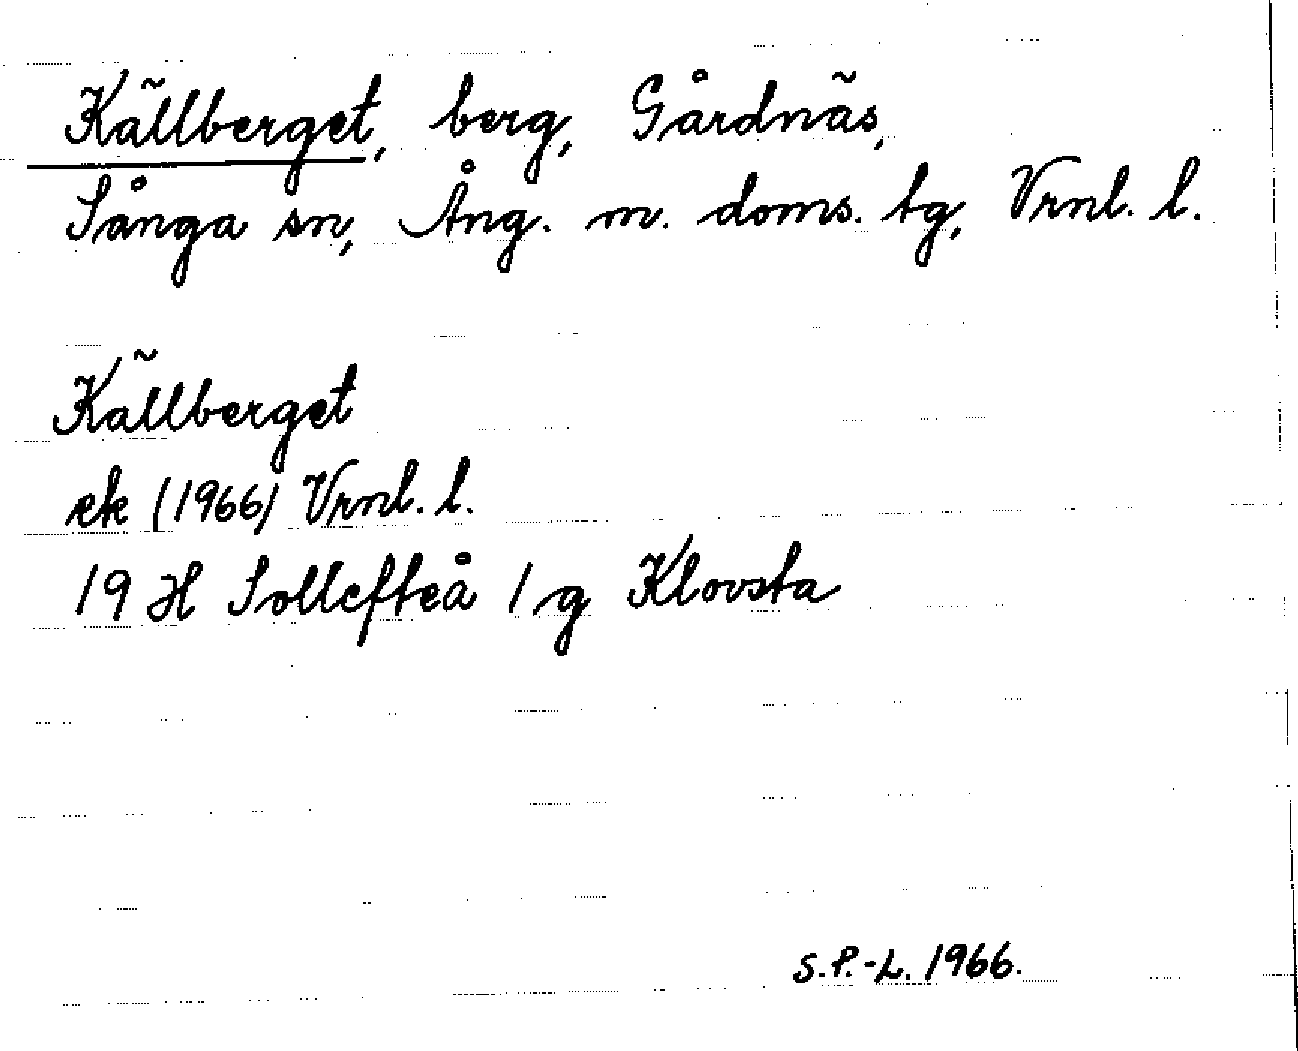 Källberget, berg, Gårdnäs,
Sånga sn, Ång. m. doms. tg, Vrnl. l.
Källberget
ek (1966) Vrnl. l.
19 H Sollefteå 1 g Klovsta
S.P.-L. 1966.